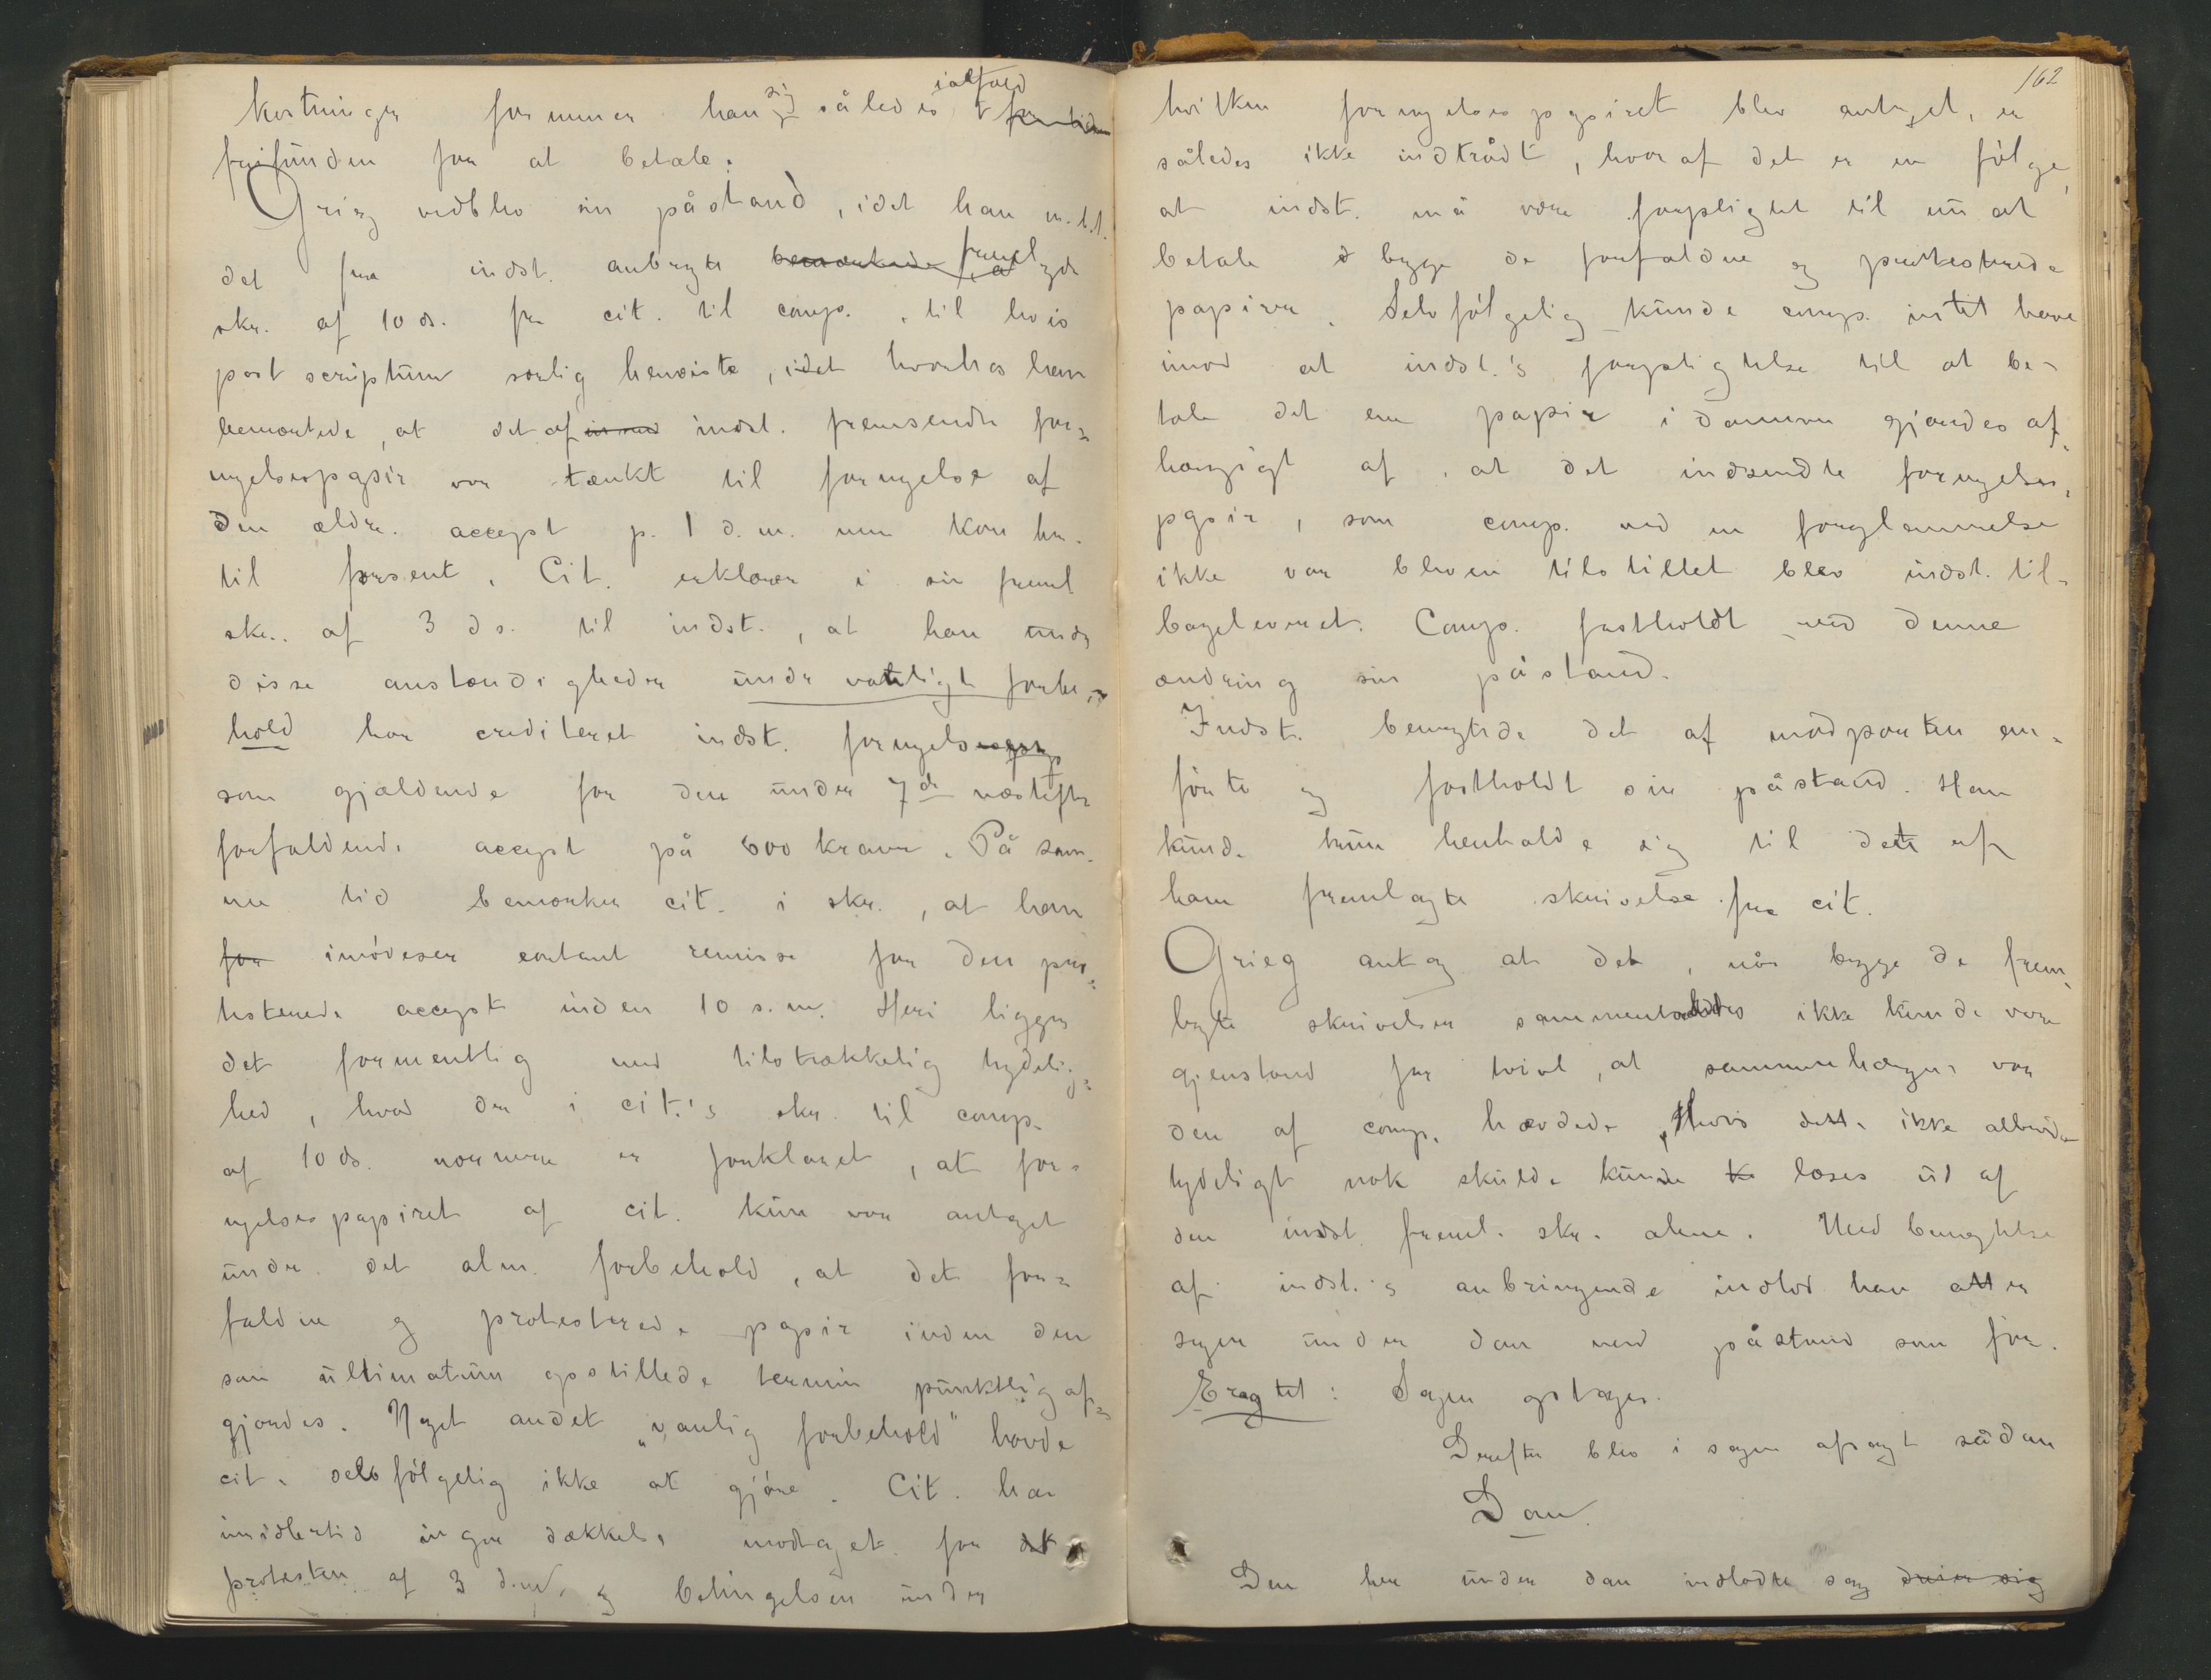 kostninger formener han sig således ialfald
frifunden for at betale.
Grieg vedblev sin påstand, idet han m. h. t.
det fra indst. anbragte bemærkede fremlagde
skr. af 10 ds. fra cit. til comp., til hvis
post scriptum særlig henviste, idet hvorhos han
bemærkede, at det af indst. fremsendte for-
nyelsespapir var tænkt til fornyelse af
den ældre accept p. 1 d. m. men kom her
til for sent. Cit. erklærer i sin freml
skr. af 3 ds. til indst., at han under
disse omstændigheder under vanligt forbe-
hold har crediteret indst. fornyelses
som gjældende for den under 7de næstefter
forfaldende accept på 600 kroner. På sam-
me tid bemærker cit. i skr., at han
for imødeser contant remisse for den pro-
testerede accept inden 10 s. m. Heri ligger
det formentlig med tilstrækkelig tydelig-
hed, hvad der i cit.'s skr. til comp.
af 10 ds. nærmere er forklaret, at for-
nyelsespapiret af cit. kun var antaget
under det alm. forbehold, at det for-
faldne og protesterede papir inden den
som ultimatum opstillede termin punktlig af-
gjordes. Noget andet "vanlig forbehold" havde
cit. selvfølgelig ikke at gjøre. Cit. har
imidlertid ingen dækkelse modtaget for det
protesten af 3 d. m. og betingelsen under
162
hvilken fornyelsespapiret blev antaget, er
således ikke indtrådt, hvoraf det er en følge,
at indst. må være forpligtet til nu at
betale begge de forfaldne og protesterede
papirer. Selvfølgelig kunde comp. intet have
imod at indst.'s forpligtelse til at be-
tale det ene papir i dommen gjordes af-
hængigt af, at det indsendte fornyelses-
papir, som comp. ved en forglemmelse
ikke var bleven tilstillet blev indst. til-
bageleveret. Comp. fastholdt med denne
ændring sin påstand.
Indst. benægtede det af modparten an-
førte og fastholdt sin påstand. Han
kunde kun henholde sig til dett af
ham fremlagte skrivelse fra cit.
Grieg antog at det, når begge de frem-
lagte skrivelser sammenholdtes ikke kunde være
gjenstand for tvivl, at sammenhængen var
den af comp. hævdede, Hvis dette ikke allerede
tydeligt nok skulde kunde læses ud af
den indst. freml. skr. alene. Med benægtelse
af indst.'s anbringende indlod han atter
sagen under dom med påstand som før.
Eragtet: Sagen optages.
Derefter blev i sagen afsagt sådan
Dom.
Den her under dom indladte sag drier sig